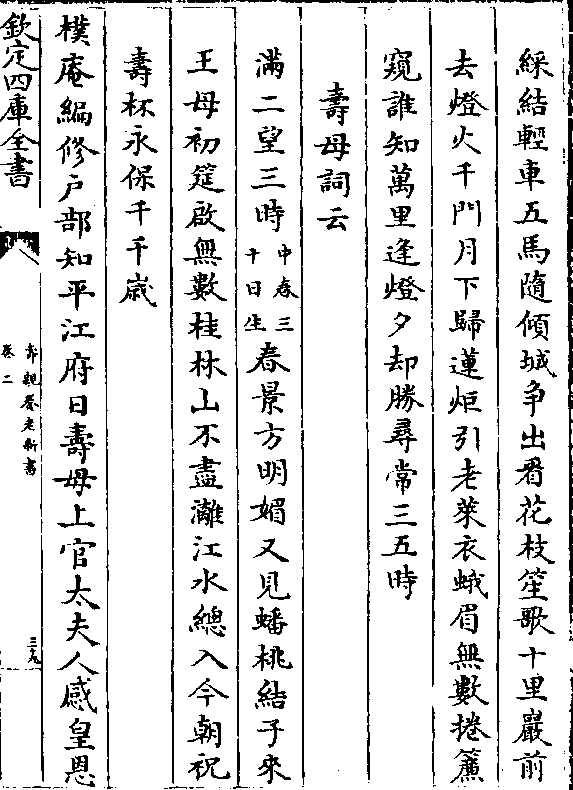 綵結輕車五馬隨傾城爭出看花枝笙歌十里巖前
去燈火千門月下歸蓮炬引老萊衣蛾眉無數捲簾
窺誰知萬里逢燈夕却勝尋常三五時
壽母詞云
滿二望三時中春三十日生春景方明媚又見蟠桃結子來
王母初筵啟無數桂林山不盡灕江水總入今朝祝
壽杯永保千千歳
樸庵編修户部知平江府日壽母上官太夫人感皇恩
欽定四庫全書
壽親養老新書
卷二
三九